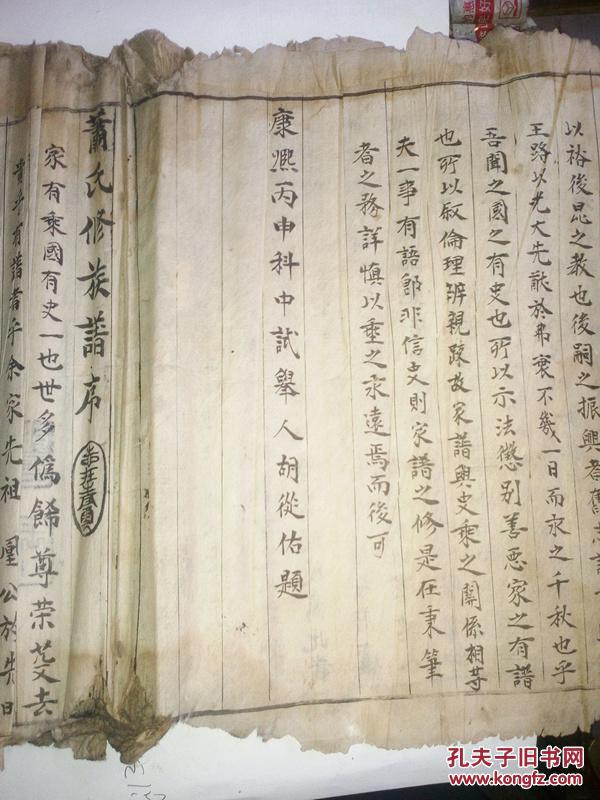 以裕後昆之教也後嗣之振興者奮志詩
王路以光大先猷於弗衰不幾一日而永之千秋也乎
吾聞之國之有史也所以示法懲别善悪家之有譜
也所以叙倫理辨親疎故家譜與史乘之關係相等
夫一事有語郎非信史則家譜之修是在秉筆
者之務詳慎以垂之永遠焉而後可
康熈丙申科中試舉人胡從佑題
蕭氏修族譜序
家有乘國有史一也世多僞餙尊荣
乎有譜者乎余家先祖 公於失日
孔夫子旧书网
www.kongfz.com